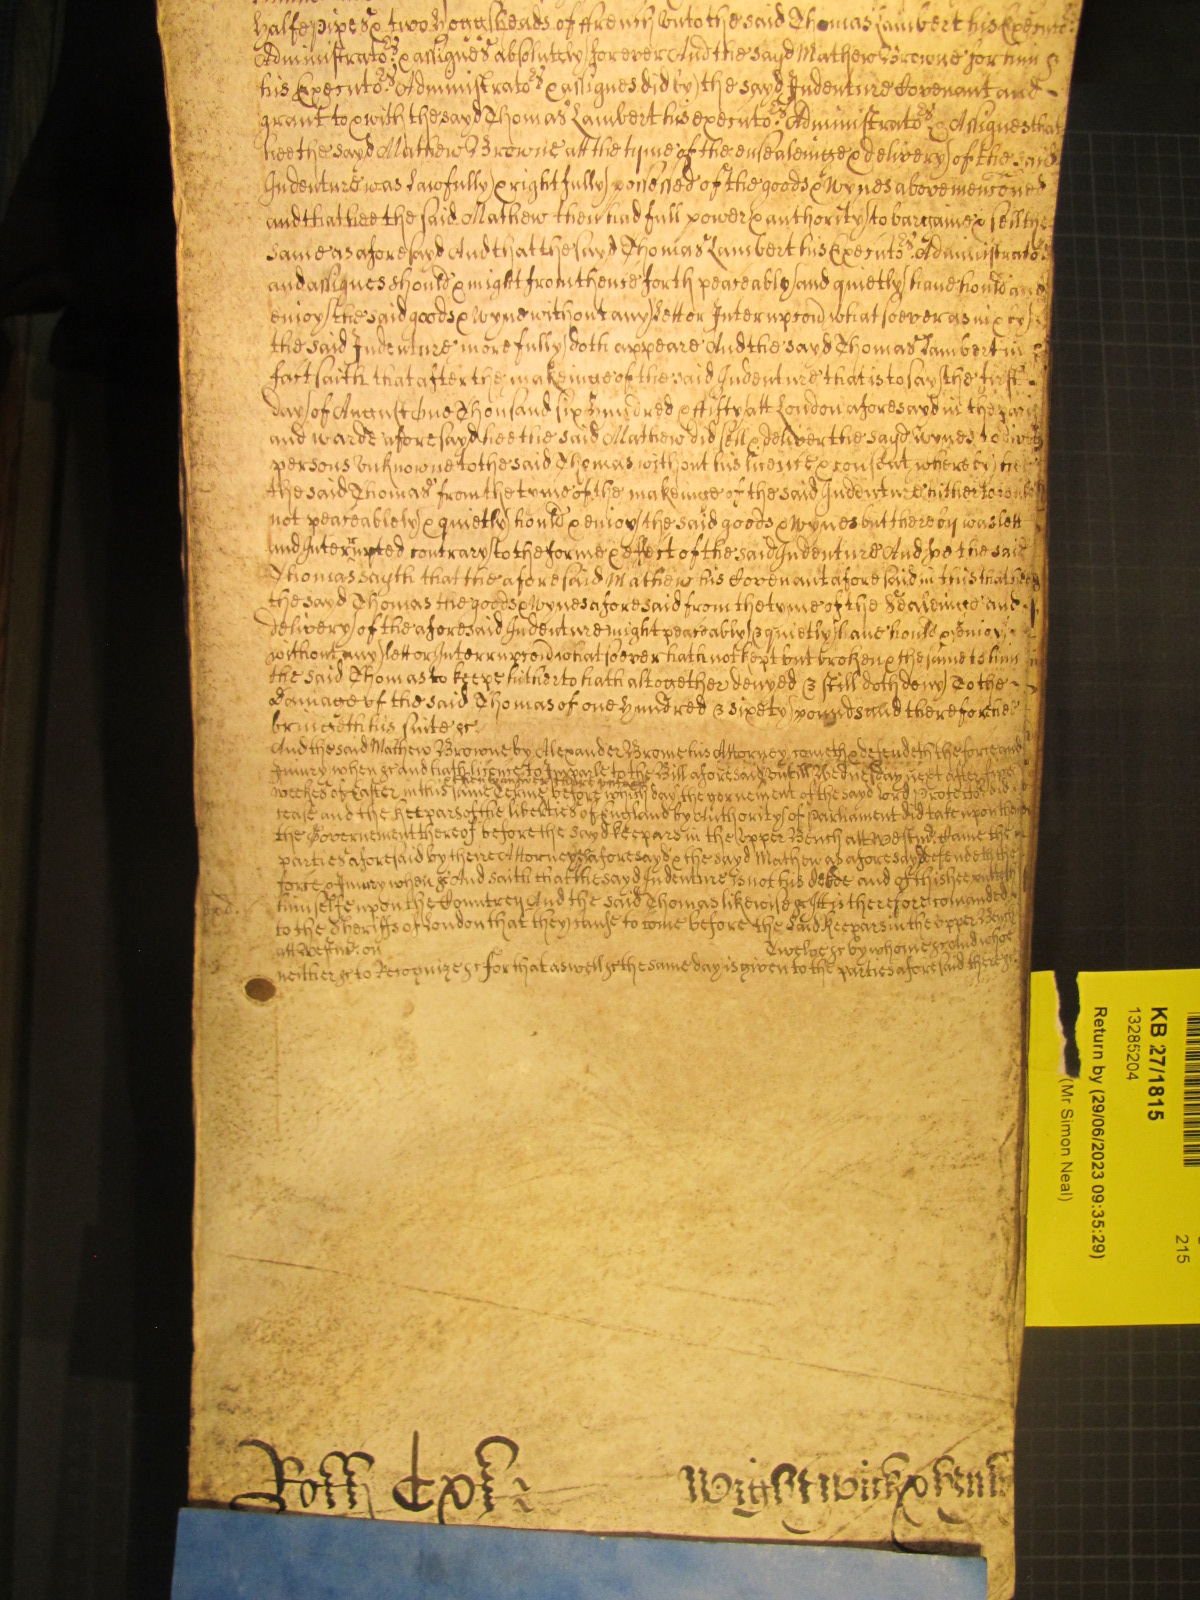 halfe pipes & two hoggsheads of ffrench unto the said Thomas Lambert his Executors
Administrators & assignes absolutely forever And the sayd Mathew Browne for him
his Executors Administrators & assignes did by the sayd Indenture Covenant and
grant to & with the sayd Thomas Lambert his executors Administrators & Assignes that
hee the sayd Mathew Browne att the tyme of the ensealeinge & delivery of the said
Indenture was Lawfully & rightfully possessed of the goods & Wynes above menconed
and that hee the said Mathew then had full power & authority to bargaine & sell the
same as aforesayd And that the sayd Thomas Lambert his Executors Administrators
and assignes should & might from thence forth peaceably and quietly have hould and
enioy the said goods & Wyne without any lett or Interrupcon whatsoever as in & by
the said Indenture more fully doth appeare And the sayd Thomas Lambert in
fact saith that after the makeinge of the said Indenture that is to say the first
day of August One Thousand six hundred & fifty att London aforesayd in the parish
and warde aforesayd hee the said Mathew did sell & deliver the sayd wynes to divers
persons unknowne to the said Thomas without his licence & consent whereby hee
the said Thomas from the tyme of the makeinge of the said Indenture hitherto could
not peaceablely & quietly hould & enioy the said goods & Wynes but thereby was lett
and Interrupted contrary to the forme & effect of the said Indenture And soe the said
Thomas sayth that the aforesaid Mathew his Covenant aforesaid in this that hee
the sayd Thomas the goods & Wynes aforesaid from the tyme of the Sealeinge and
delivery of the aforesaid Indenture might peaceably & quietly have hould & enioy
without any lett or Interrupcon whatsoever hath not kept but broken & the same to him
the said Thomas to keepe hitherto hath altogether denyed & still doth deny To the
damage of the said Thomas of one hundred & sixety pounds and therefore hee
bringeth his suite &c
And the said Mathew Browne by Alexander Brome his Attorney cometh & defendeth the force and
Iniury when &c and hath licence to Imparle to the Bill aforesaid untill Wednesday next after five
weekes of Easter in this same Terme before which day the governement of the sayd lord Protector did
cease and the keepars of the liberties of England by Authority of Parliament did take upon them
the Governement thereof before the sayd keepars in the upper Bench att Westmr Came the
parties aforesaid by their Attorneys aforesayd & the sayd Mathew as aforesayd defendeth the
force & Iniury when &c And saith that the sayd Indenture is not his deede and of this hee putteth
himselfe upon the Countrey And the said Thomas likewise &c It is therefore comanded
to the Sheriffs of London that they cause to come before the said keepars in the upper Bench
att Westmr on Twelve &c by whome &c And whoe
neither &c to Recognize &c for that aswell &c the same day is given to the parties aforesaid there &c
Wightwick
KB 27/1815
13285204
Return by (29/06/2023 09:35:29)
(Mr Simon Neal)
215